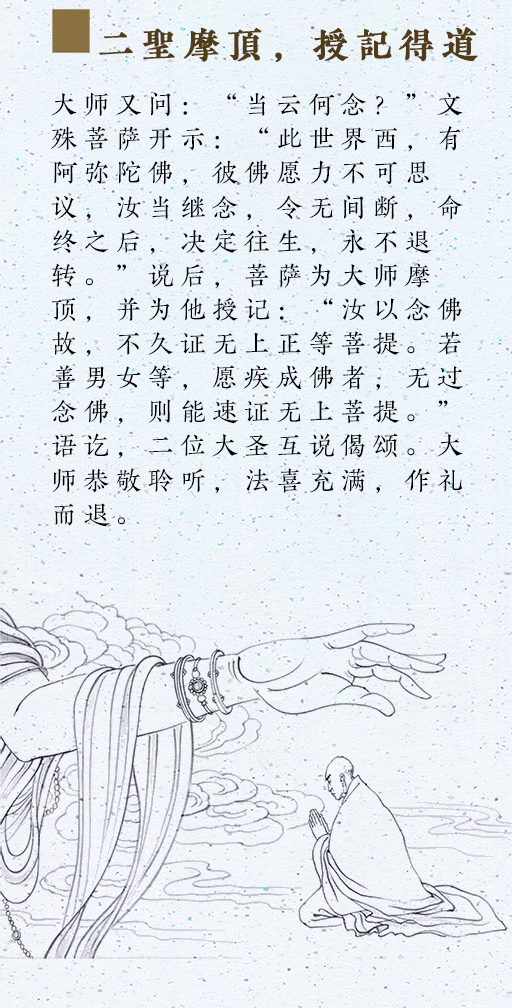 二聖摩頂，授記得道
大师又问：“当云何念？”文
殊菩萨开示：“此世界西，有
阿弥陀佛，彼佛愿力不可思
议，汝当继念，令无间断，命
终之后，决定往生，永不退
转。”说后，菩萨为大师摩
顶，并为他授记：“汝以念佛
故，不久证无上正等菩提。若
善男女等，愿疾成佛者，无过
念佛，则能速证无上菩提。”
语讫，二位大圣互说偈颂。大
师恭敬聆听，法喜充满，作礼
而退。